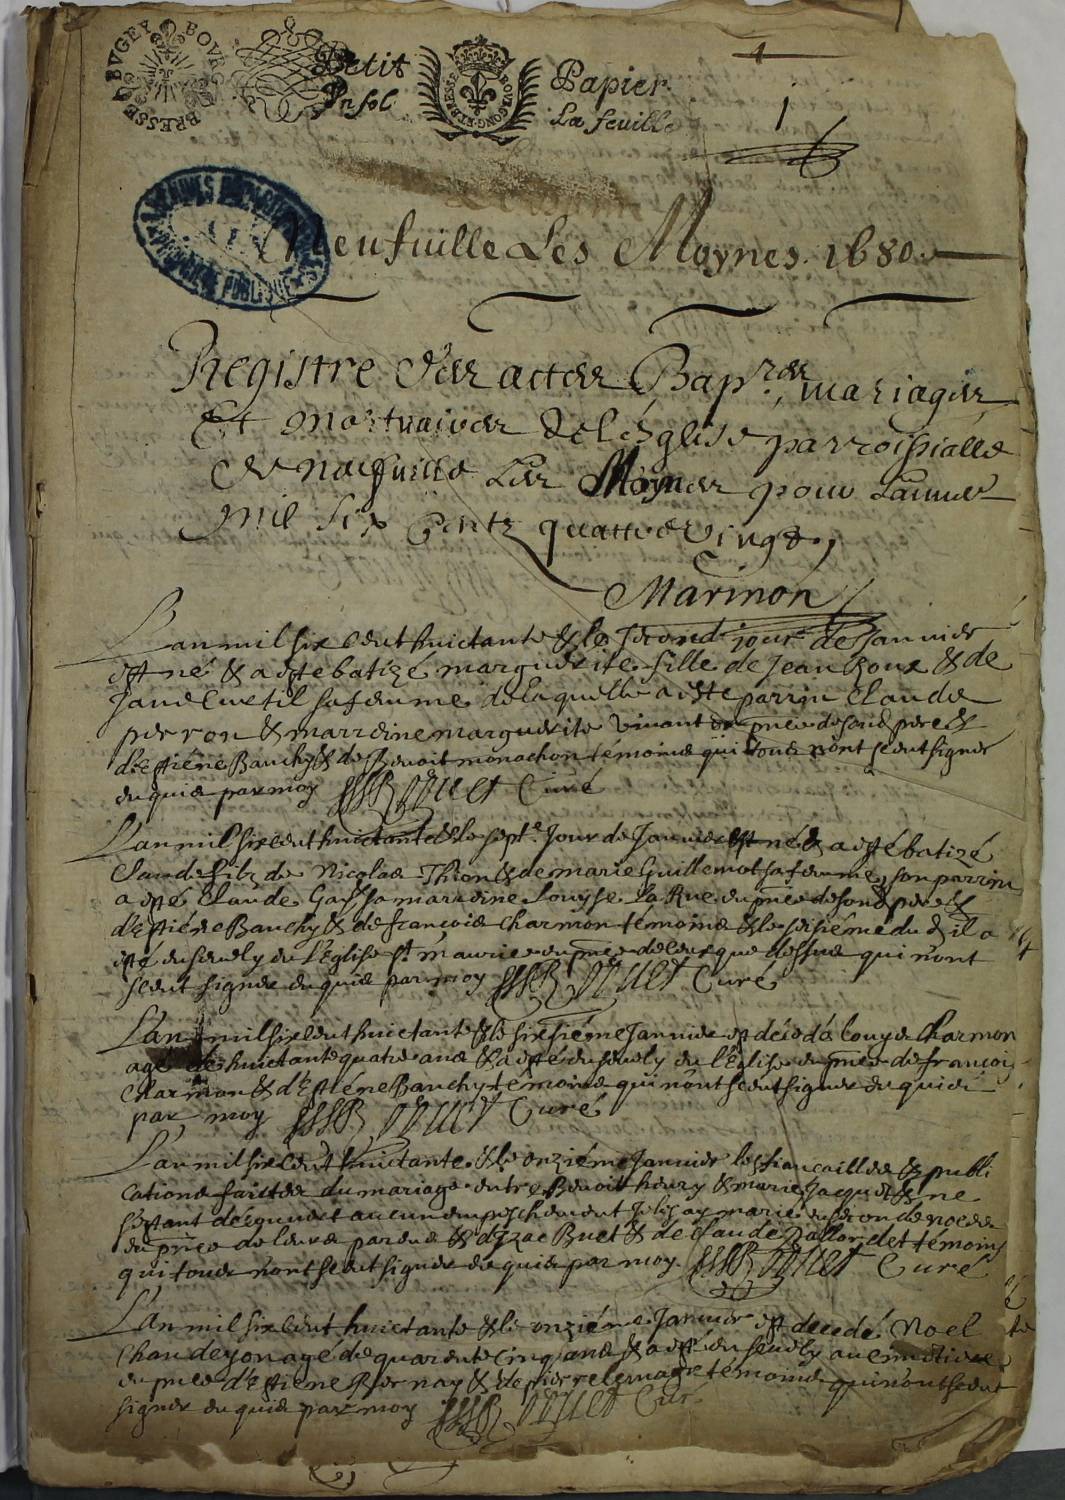 BRESSE BVGEY BOVRG
Petit Papier 1
Un sol La feuille 1
BOVRGONG ET BRESSE
ARCHIVES DEPARTEMENTALES
PUBLIQUE
Neufuille Les Moynes. 1680.
Registre des actes Bap.mes, mariages
Et Mortuaires de l'église parroissialle
de neufville Les Moynes pour Lannee
mil six Centz quattre vingt,
Marinon
L'an mil six cent huictante & le second jour de Januier
est né & a esté batizé marguerite fille de Jean Roux & de
sa femme de laquelle a esté parrin Claude
perron & marreine marguerite Vinant en p̃nce de
d'Estiéne Banchy & de Benoit monachon témoins qui tous n'ont sceut signer
enquis par moy Curé
L'an mil six cent huictante & le sept.e Jour de Januier est né & a esté batizé
Claude filz de Nicolas Thion & de marie Guillemot sa femme, son parrin
a esté Claude Gay sa marreine Louyse La Rue en p̃nce de
d'Estiéne Banchy & de françois Charmon témoins & le seisiéme du d. il a
esté enseuely en L'Eglise St maurice en p̃nce de ceux que dessus qui n'ont
sceut signer enquis par moy Curé
L'an mil six cent huictante & le sixiéme Januier est décédé louys Charmon
agé de huictante quatre ans & a esté enseuely en l'Eglise en p̃nce de françois
Charmon & d'Estiéne Banchy témoins qui n'ont sceut signer enquis
par moy Curé
L'an mil six cent huictante & le onziéme Januier les fiancailles & publi
cations faittes du mariage entre Benoit henry & marie Jacquet & ne
s'estant decouuert aucun empeschement Je les ay marié
en p̃nce de leurs parens & d'Yzac Buet & de Claude témoins
qui tous n'ont sceut signer enquis par moy. Curé
L'An mil six cent huictante & le onziéme Januier est decedé Noel
Chandeyon agé de quarente cinq ans & a esté enseuely au cimetiere
en p̃nce d'Estiéne & de pierre témoins qui n'ont sceut
signer enquis par moy Curé